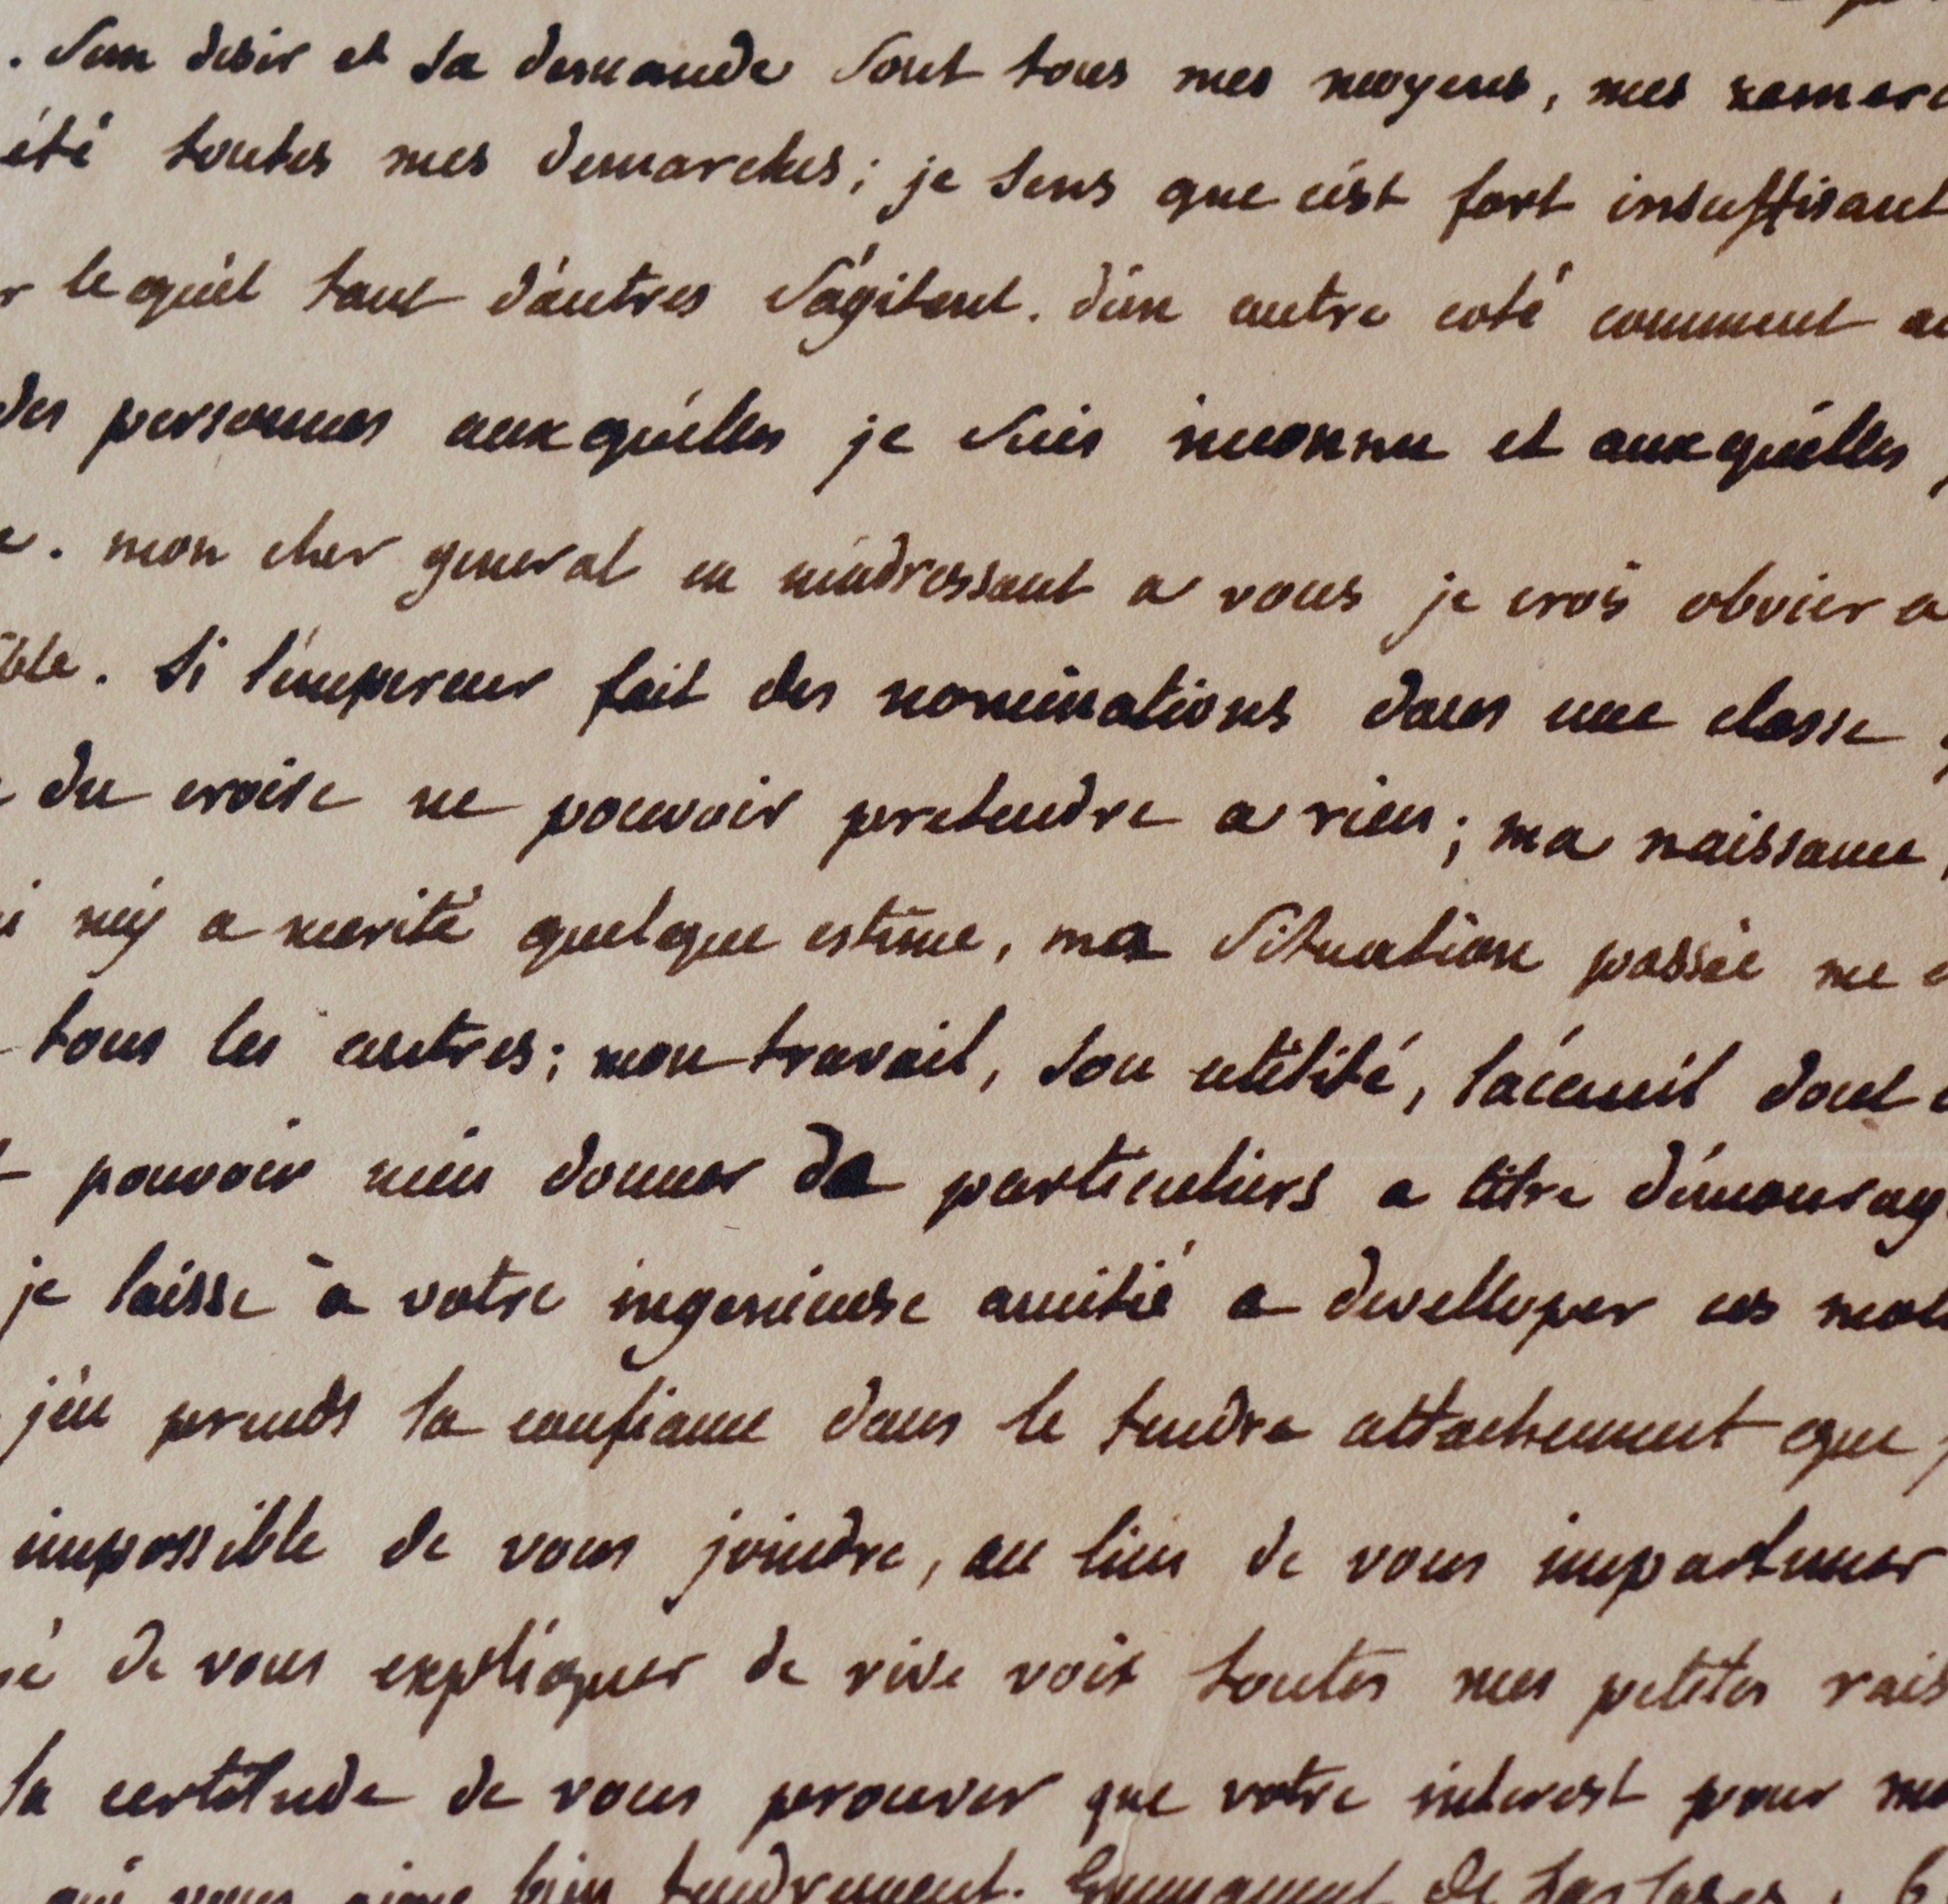 . Son desir et sa demande sont tous mes moyens, mes
été toutes mes demarches; je sens que c'est fort insuffisant
le qu'el tant d'autres s'agitent. d'un autre coté comment
des personnes aux qu'elles je suis inconnu et aux qu'elles
. mon cher general en m'adressant a vous je crois obvier a
Si l'empereur fait des nominations dans une classe
du croise ne pouvoir pretendre a rien; ma naissance,
m'y a merité quelque estime, ma situation passée me
tous les autres; mon travail, son utilité, l'acceuil dont
pouvoir m'en donner de particuliers a titre d'encourag
je laisse à votre ingenieuse amitié a develloper ces
j'en prends la confiance dans le tendre attachement que
impossible de vous joindre, au lieu de vous importuner
de vous expliquer de vive voix toutes mes petites rais
la certitude de vous prouver que votre interest pour
qui vous aime bien tendrement. Emmanuel de Las Cases